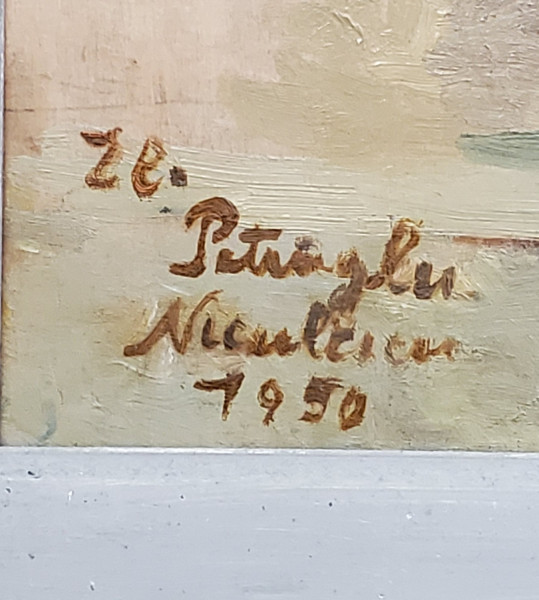 Zl.
Petroglu
Niculescu
1950